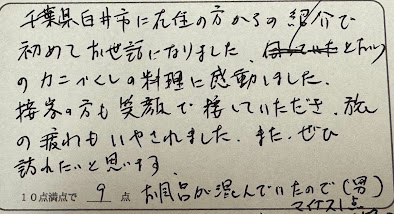 千葉県白井市に在住の方からの紹介で
初めてお世話になりました。とたん
のカニづくしの料理に感動しました。
接客の方も笑顔で接していただき、旅
の疲れもいやされました。また、ぜひ
訪れたいと思います。
10点満点で 9 点 お風呂が混んでいたので(男)
マイナス1点